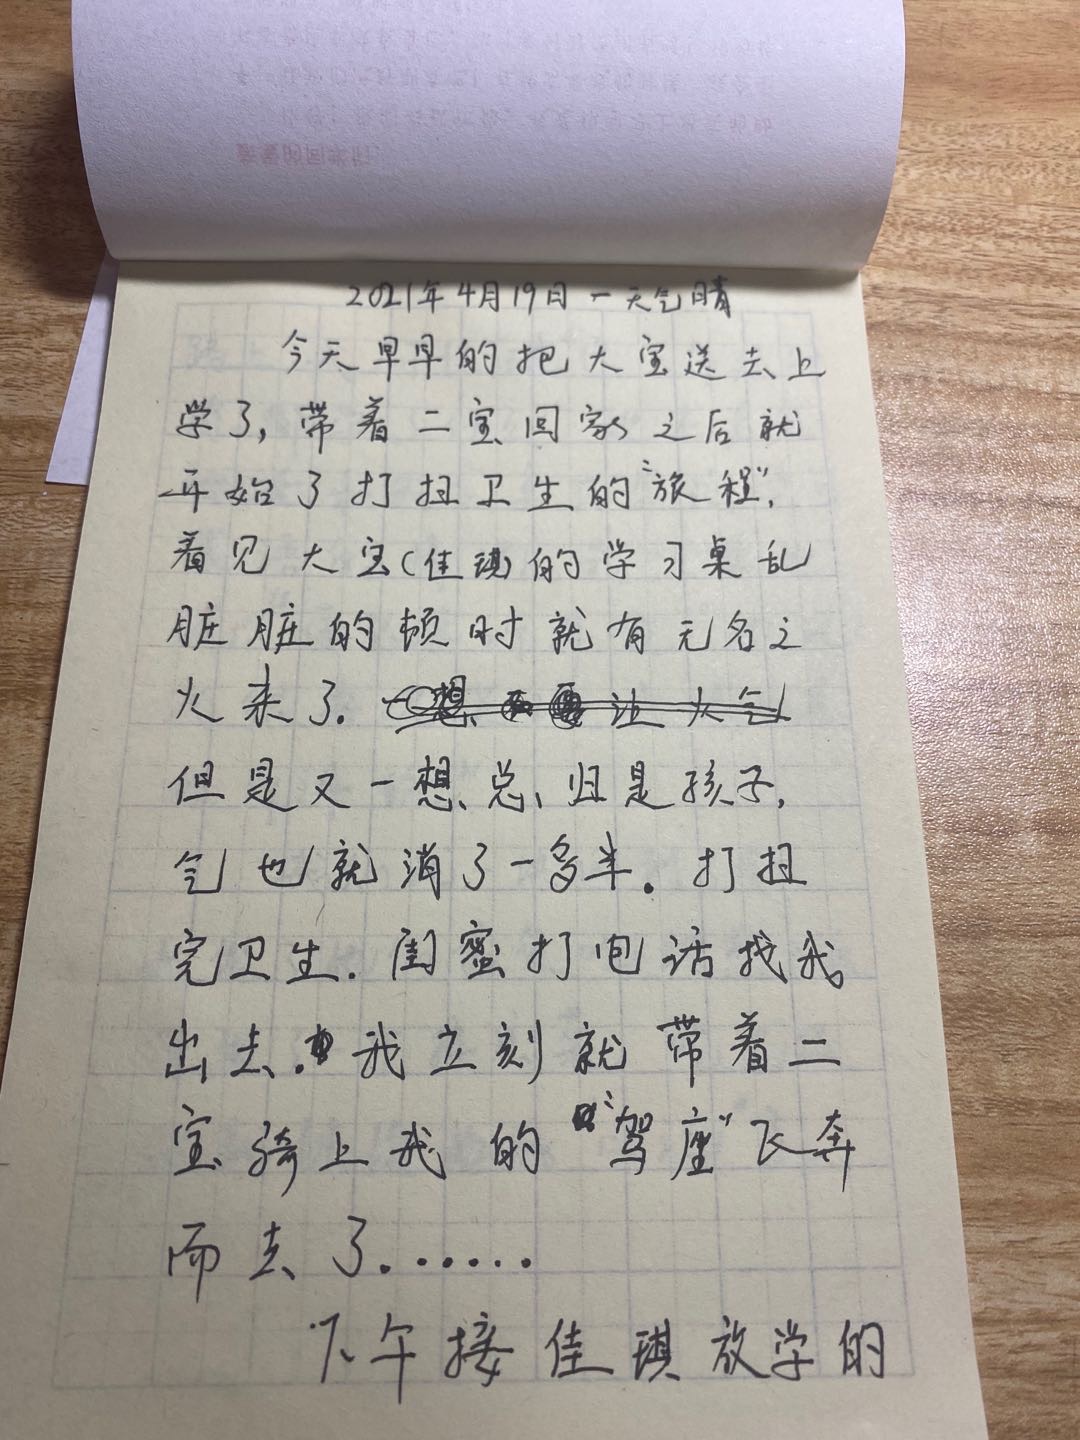 2021年4月19日 一 天气晴
今天早早的把大宝送去上
学了,带着二宝回家之后就
开始了打扫卫生的“旅程”,
看见大宝(佳琪)的学习桌乱
脏脏的顿时就有无名之
火来了.
但是又一想,总归是孩子,
气也就消了一多半.打扫
完卫生.闺蜜打电话找我
出去.我立刻就带着二
宝骑上我的“驾座”飞奔
而去了.......
下午接佳琪放学的